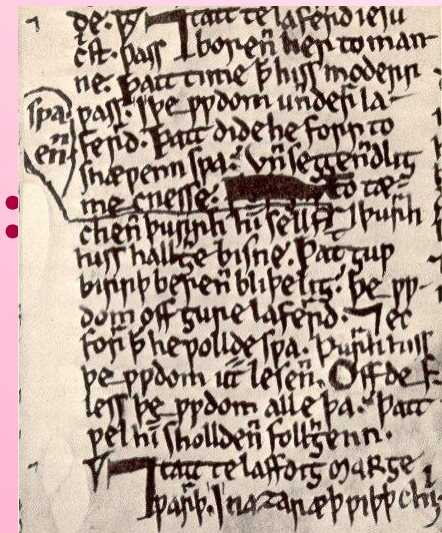 de. ⁊ tatt te laferrd iesu
crist. ƿass borenn her to man
ne. Þatt time þ hiss moderr
ƿass. i þe ƿƿdom unnderr la
ferrd. Þatt dide he forr to
shæƿenn sƿa. unnseggenndliȝ
mecnesse. to tæ
chenn þurrh himm sellf. ⁊ þurrh
tuss hallȝe bisne. Þat ȝuƿ
birrþ berenn bliþeliȝ. Þe ƿƿ
dom off ȝure laferrd. ⁊ ec
forr þ he ƿollde sƿa. Þurrh tuss
þe ƿƿdom ut lesenn. Off def
less þe ƿƿdom alle þa. Þatt
ƿel himm shollden follȝenn.
⁊ tatt te laffdiȝ marȝe
ƿarrþ. I nazaræþ ƿiþþ chi
sƿa
enn